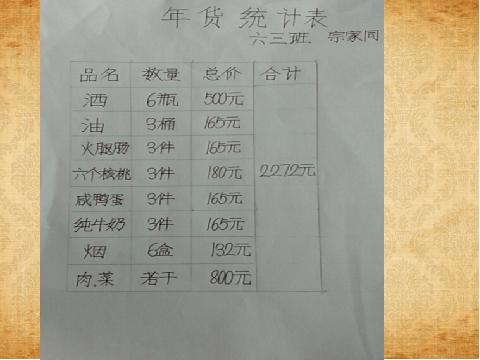 年货统计表
六三班 宗家同
品名 数量 总价 合计
酒 6瓶 500元
油 3桶 165元
火腿肠 3件 165元
六个核桃 3件 180元 2272元
咸鸭蛋 3件 165元
纯牛奶 3件 165元
烟 6盒 132元
肉.菜 若干 800元